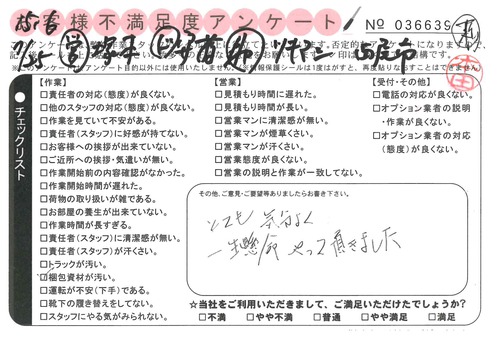 お客様不満足度アンケート
No 03663S
【作業】
□責任者の対応(態度)が良くない。
□他のスタッフの対応(態度)が良くない。
□作業を見ていて不安がある。
□責任者(スタッフ)に好感が持てない。
□お客様への挨拶が出来ていない。
□ご近所への挨拶・気遣いが無い。
□作業開始前の内容確認がなかった。
□作業開始時間が遅れた。
□荷物の取り扱いが雑である。
□お部屋の養生が出来ていない。
□作業時間が長すぎる。
□責任者(スタッフ)に清潔感が無い。
□責任者(スタッフ)が汗くさい。
□トラックが汚い。
□梱包資材が汚い。
□運転が不安(下手)である。
□靴下の履き替えをしてない。
□スタッフにやる気がみられない。
【営業】
□見積もり時間に遅れた。
□見積もり時間が長い。
□営業マンに清潔感が無い。
□営業マンが煙草くさい。
□営業マンが汗くさい。
□営業態度が良くない。
□営業の説明と作業が一致してない。
【受付・その他】
□電話の対応が良くない。
□オプション業者の説明
・作業が良くない。
□オプション業者の対応
(態度)が良くない。
チェックリスト
その他、ご意見・ご要望等ありましたらお書き下さい。
とても 気分よく
一生懸命 やって頂きました
☆当社をご利用いただきまして、ご満足いただけたでしょうか?
□不満 □やや不満 □普通 □やや満足 □満足
ご協力ありがとうございました。